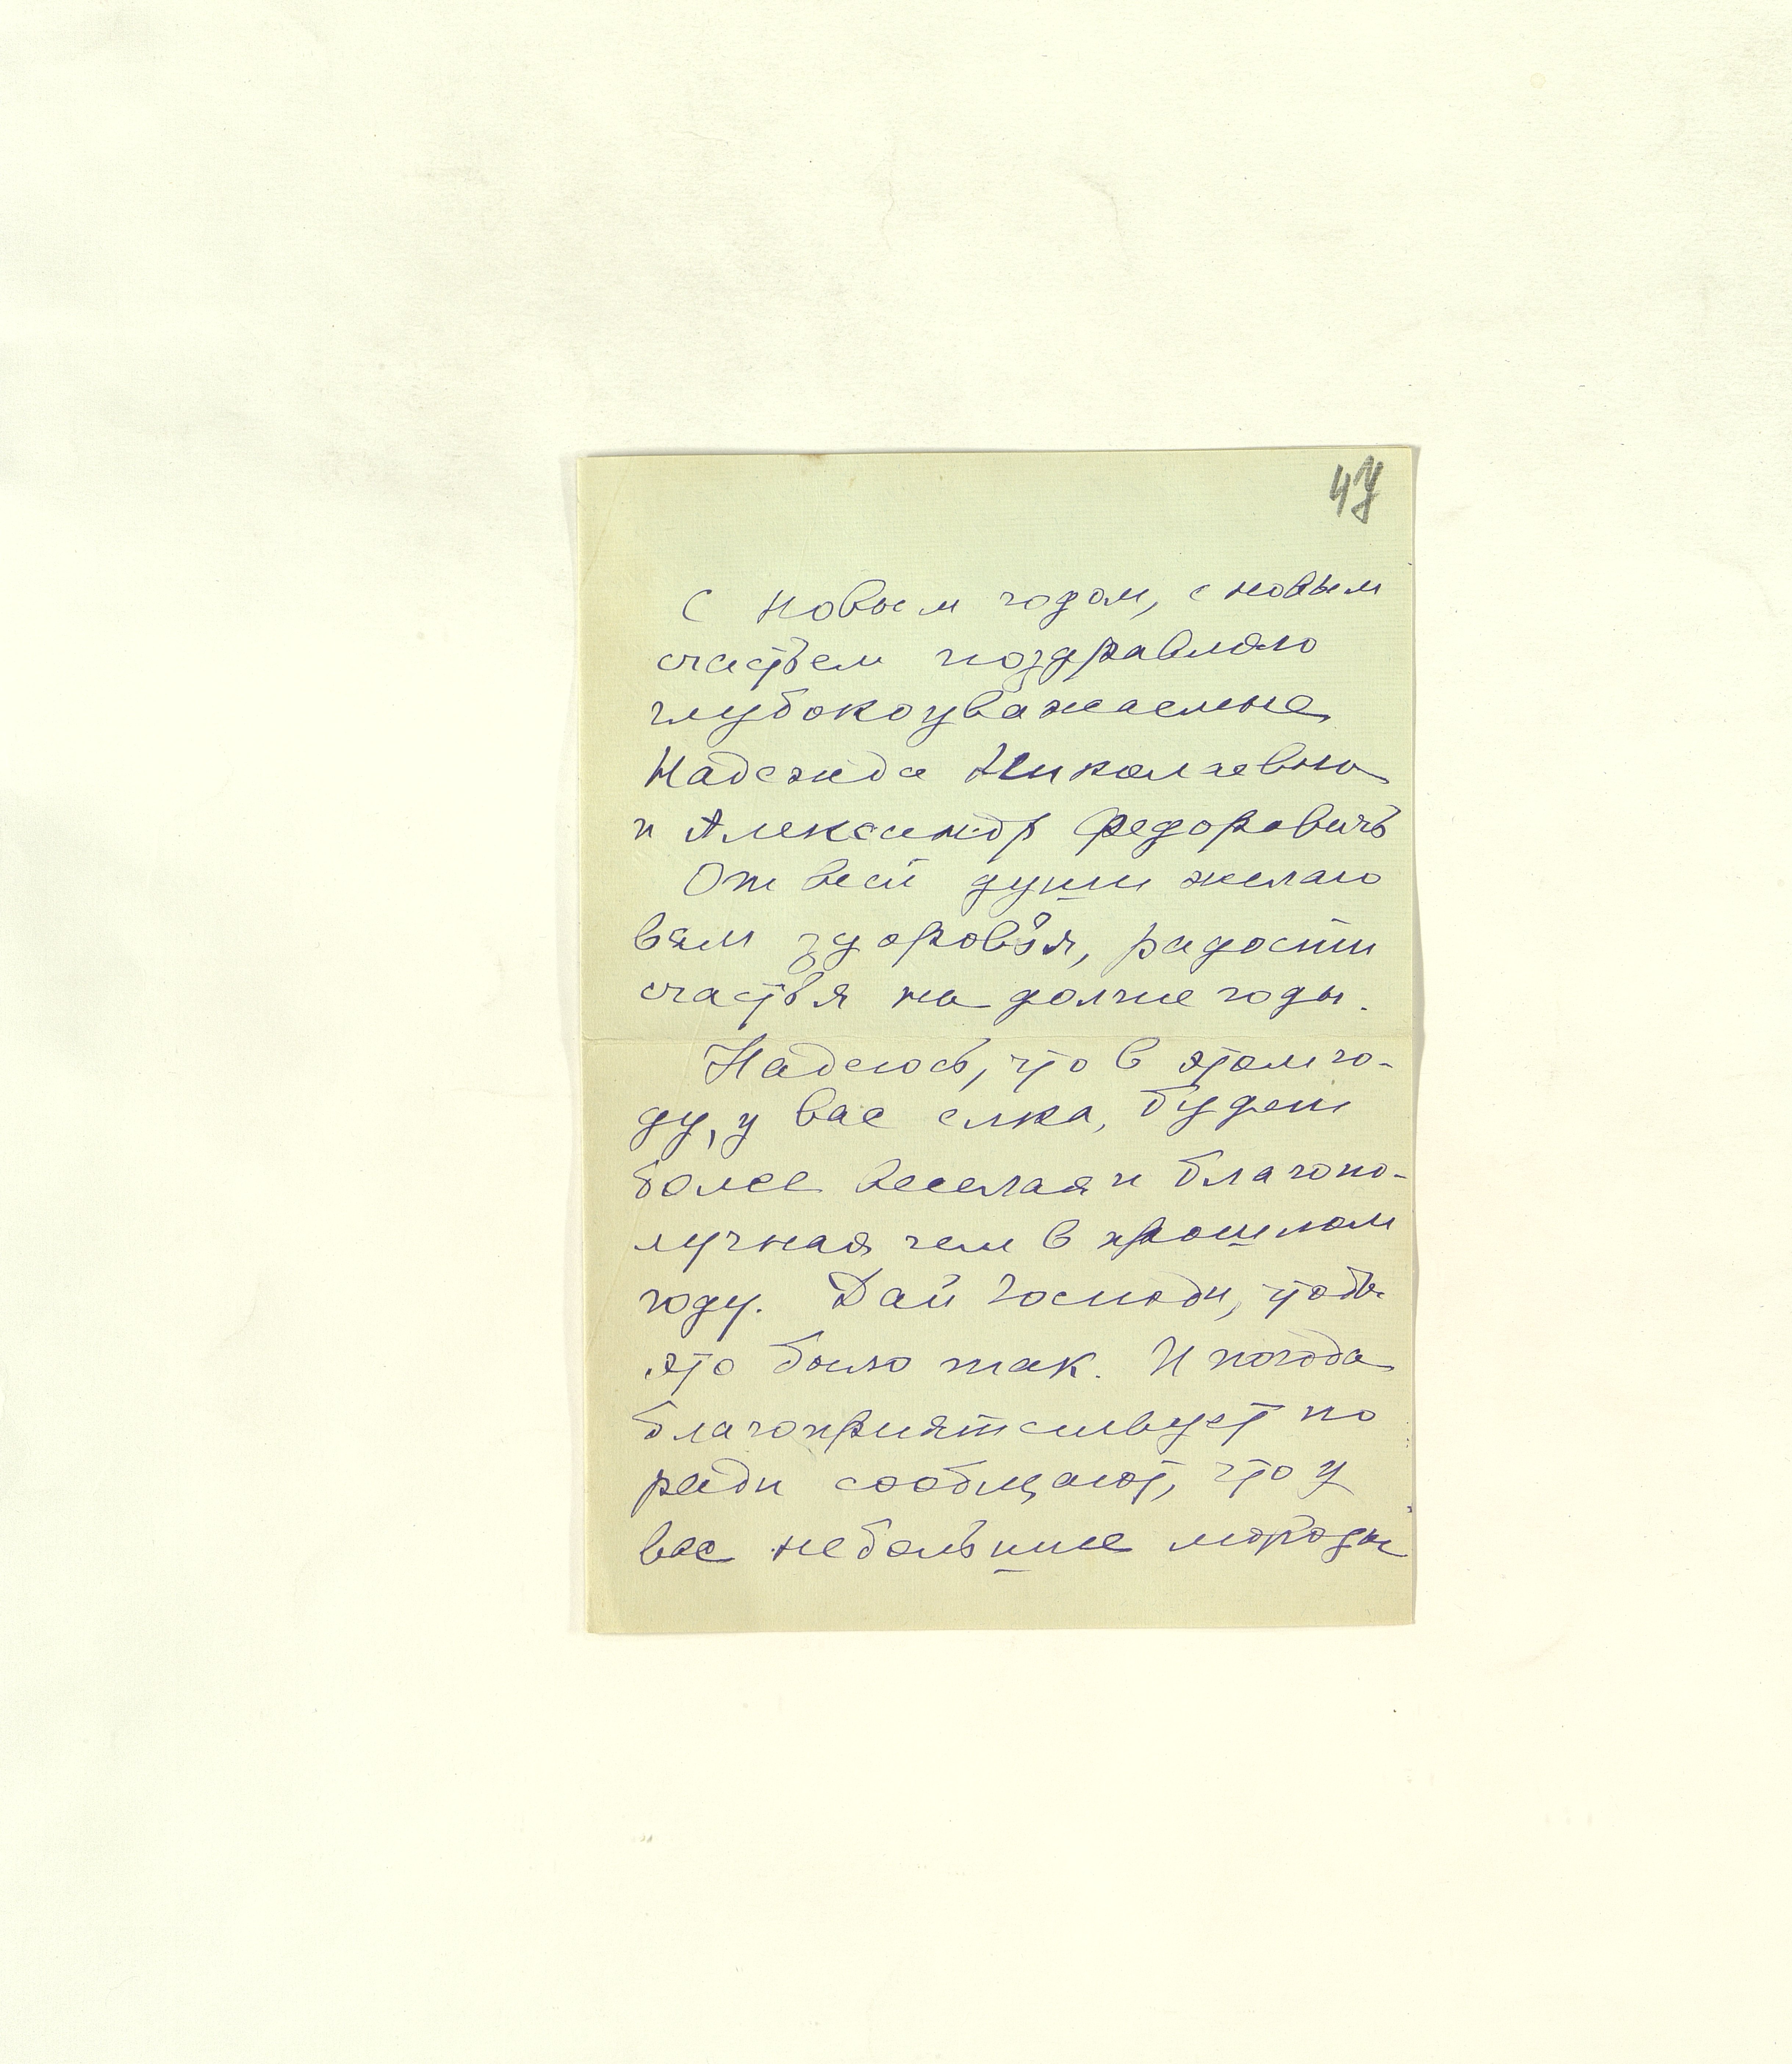 47
С новым годом, с новым
счастьем поздравляю
глубокоуважаемые
Надежда Николаевна
и Александр Федоровичъ
От всей души желаю
вам здоровья, радости
счастья на долгие годы.
Надеюсь, что в этом го-
ду, у вас елка, будет
более веселая и благопо-
лучная чем в прошлом
году. Дай Господи, чтобы
это было так. И погода
благоприятствует по
ради сообщают, что у
вас небольшие морозы